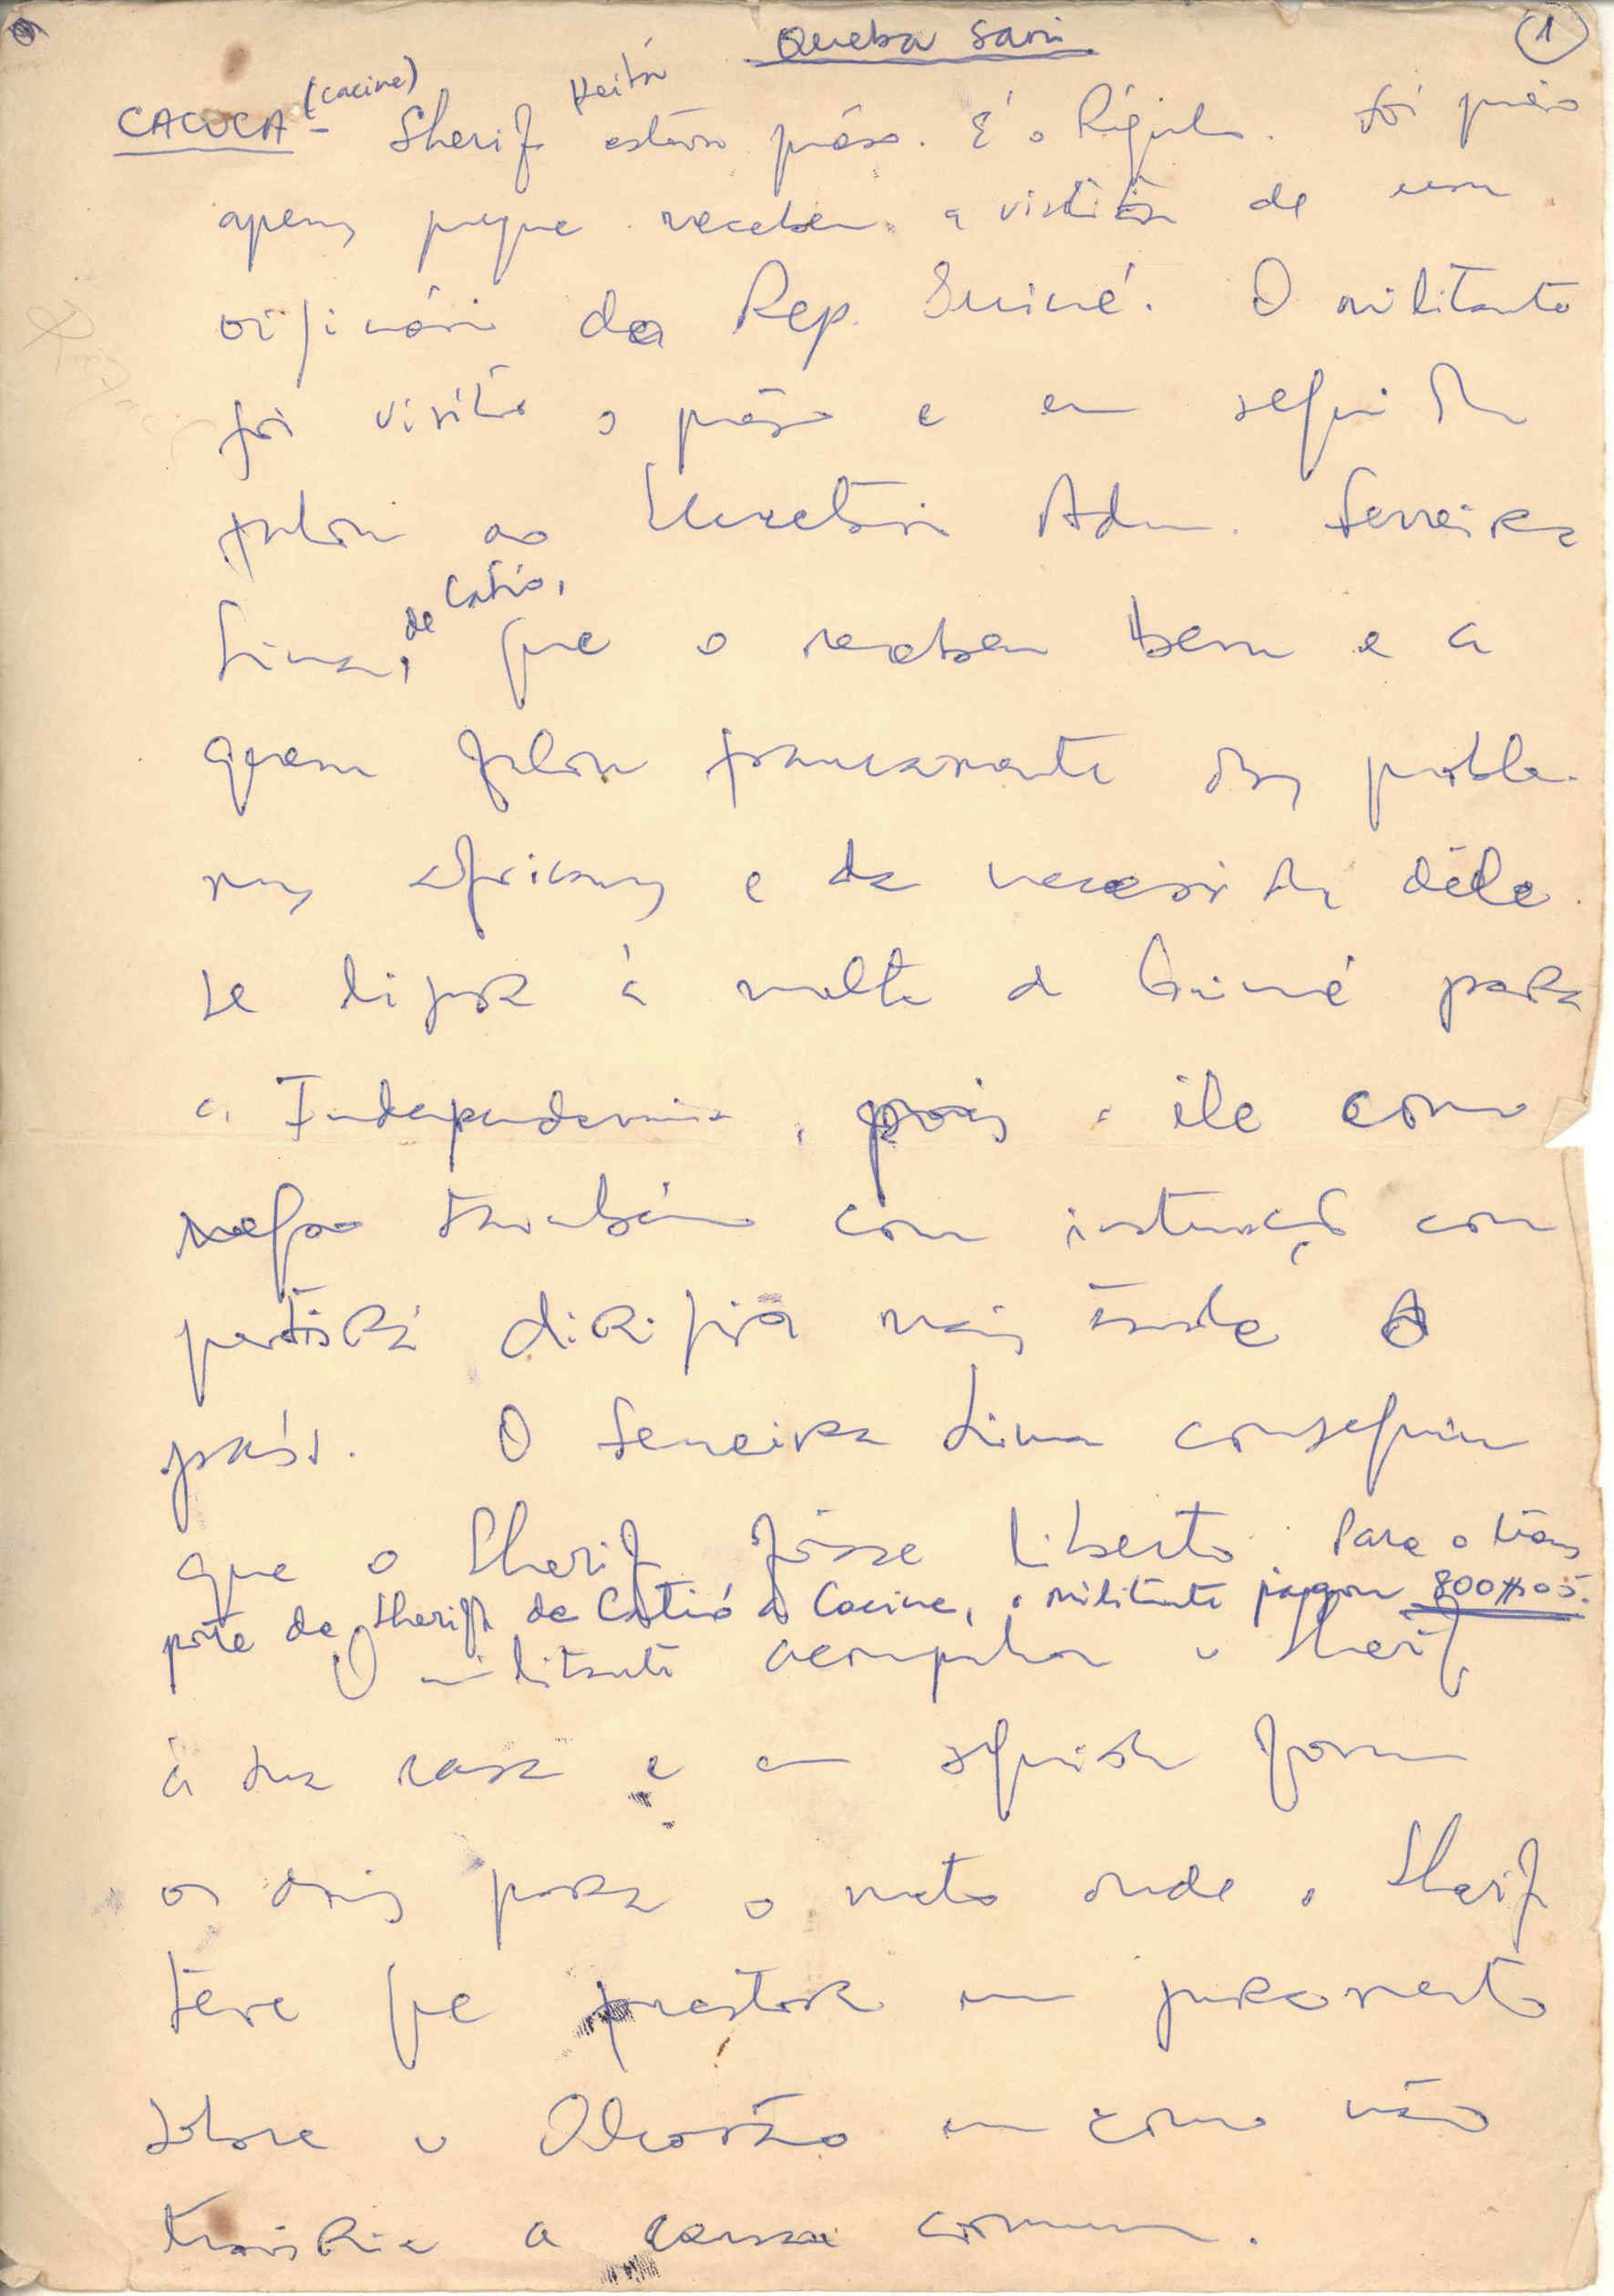 Queba Sani
1
CACOCA (Cacine) - Sherif Keita estava prêso. É o Régulo. Foi prêso
apenas porque recebeu a visita de um
originário da Rep. Guiné. O militante
foi visitar o prêso e em seguida
falou ao Secretário Adm. Ferreira
Lima, de Catió, que o recebeu bem e a
quem falou francamente dos proble-
mas africanos e da necessidade dêle
se ligar à malta da Guiné para
a Independencia, pois e êle como
negro também com instrução com
partirá dirigirá mais tarde o
país. O Ferreira Lima conseguiu
que o Sherif fôsse liberto. Para o trans
porte de Sherif de Catió a Cacine, o militante pagou 800$00.
O militante acompanhou o Sherif
à sua casa e em seguida foram
os dois para o mato onde o Sherif
teve que prestar um juramento
sobre o Alcorão em como não
trairia a causa comum.